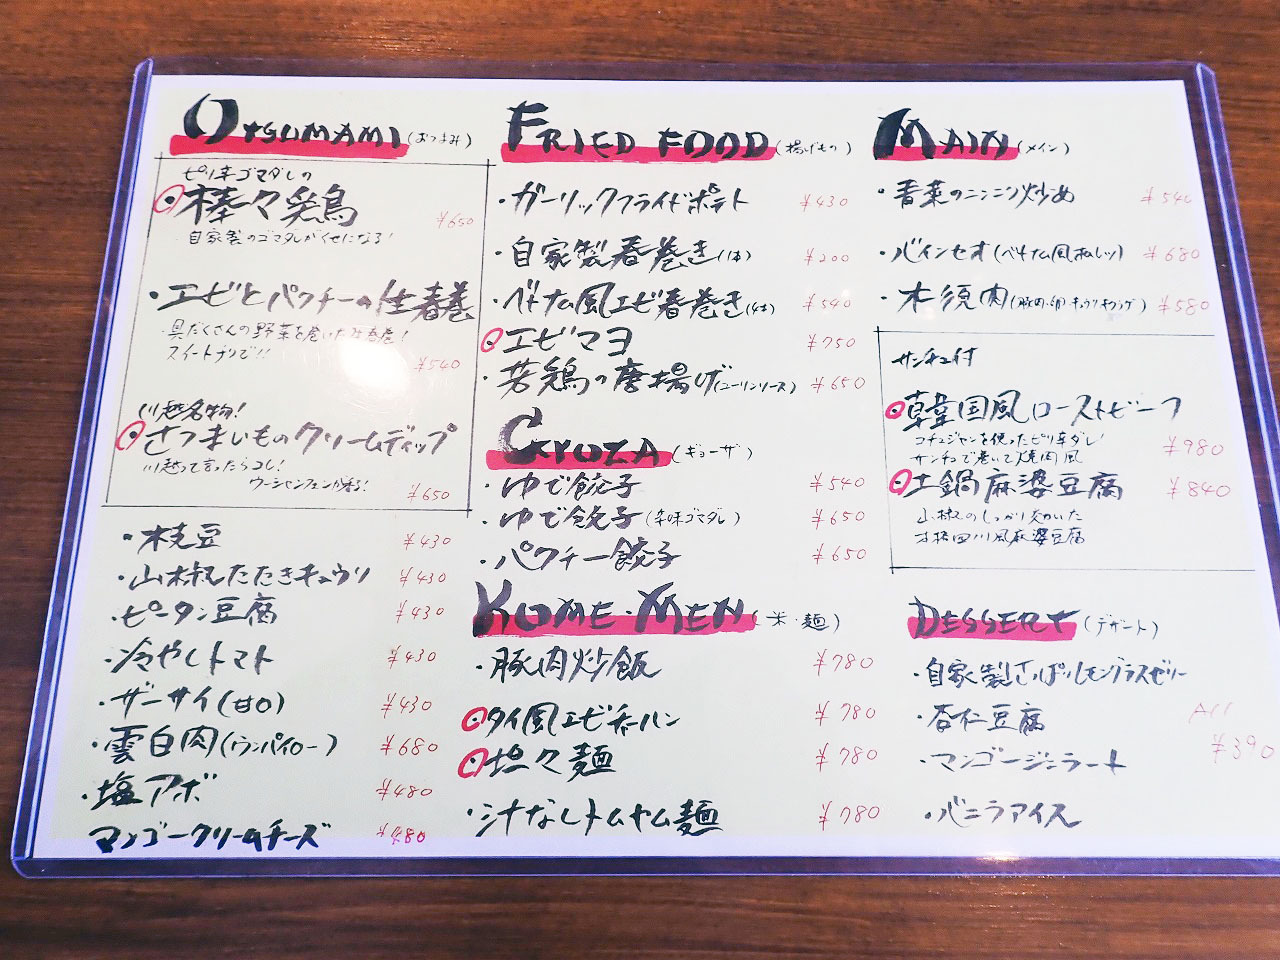 OTSUMAMI (おつまみ)
ピリ辛ゴマダレの
棒々鶏 ¥650
自家製のゴマダレがくせになる!
・エビとパクチーの生春巻
具だくさんの野菜を巻いた生春巻!
スイートチリで!! ¥540
川越名物!
さつまいものクリームディップ
川越って言ったらコレ!
ウーシャンフェンが香る! ¥650
・枝豆 ¥430
・山椒たたきキュウリ ¥430
・ピータン豆腐 ¥430
・冷やしトマト ¥430
・ザーサイ(甘口) ¥430
・雲白肉(ウンパイロー) ¥680
・塩アボ ¥480
マンゴークリームチーズ ¥480
FRIED FOOD (揚げもの)
・ガーリックフライドポテト ¥430
・自家製春巻き(1本) ¥200
・ベトナム風エビ春巻き(4本) ¥540
エビマヨ ¥750
・若鶏の唐揚げ(ユーリンソース) ¥650
GYOZA (ギョーザ)
・ゆで餃子 ¥540
・ゆで餃子(辛味ゴマダレ) ¥650
・パクチー餃子 ¥650
KOME・MEN (米・麺)
・豚肉炒飯 ¥780
タイ風エビチャーハン ¥780
坦々麺 ¥780
・汁なしトムヤム麺 ¥780
MAIN (メイン)
・青菜のニンニク炒め ¥540
・バインセオ(ベトナム風お好み) ¥680
・木須肉(豚肉・卵・キュウリ・キクラゲ) ¥580
サンチュ付
韓国風ローストビーフ
コチュジャンを使ったピリ辛ダレ!
サンチュで巻いて焼肉風 ¥980
土鍋麻婆豆腐 ¥840
山椒のしっかり効いた
本格四川風麻婆豆腐
DESSERT (デザート)
・自家製さっぱりレモングラスゼリー
・杏仁豆腐 All
・マンゴージェラート ¥390
・バニラアイス